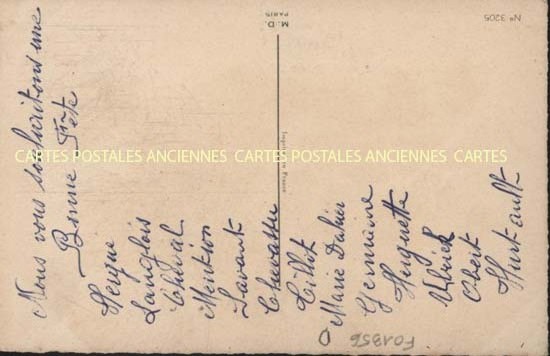 Nous vous souhaitons une
Bonne Fête
Herque
Langlois
Cheval
Mention
Savant
Chevassu
Tillot
Marie Dahier
Germaine
Huguette
Ulrick
Obert
Hurtault
M. D.
PARIS
N° 3205
Imprimé en France
F01356
CARTES POSTALES ANCIENNES CARTES POSTALES ANCIENNES CARTES